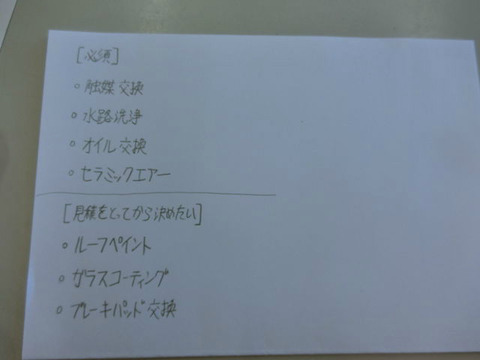 [必須]
○ 触媒交換
○ 水路洗浄
○ オイル交換
○ セラミックエアー
[見積をとってから決めたい]
○ ルーフペイント
○ ガラスコーティング
○ ブレーキパッド交換